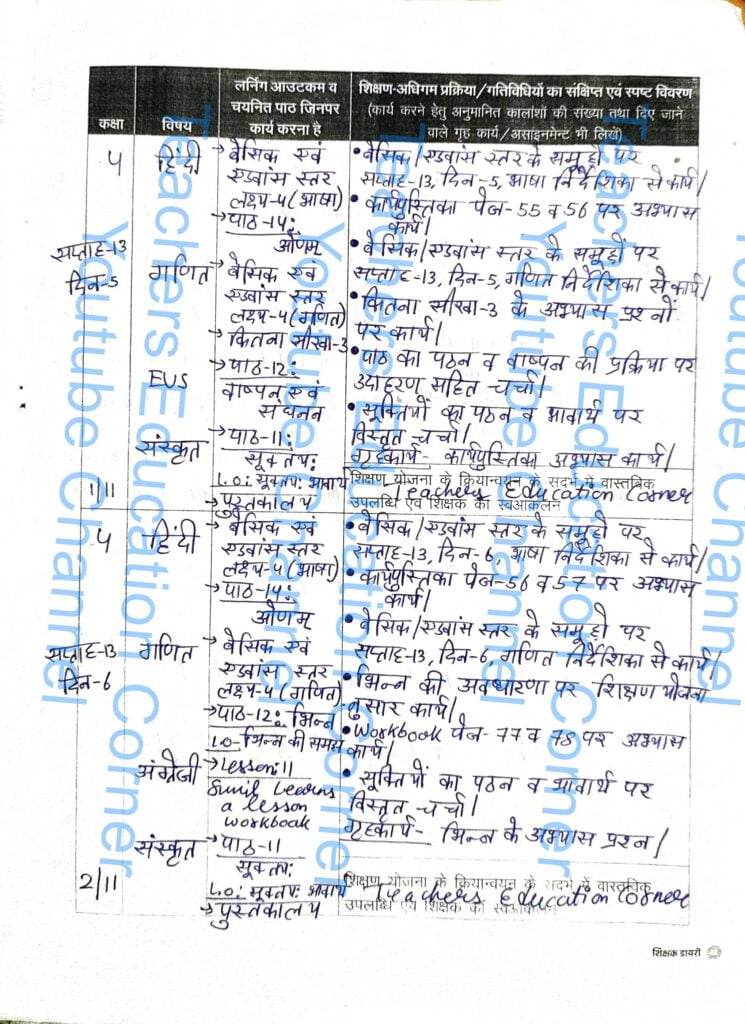 कक्षा
विषय
लर्निंग आउटकम व
चयनित पाठ जिनपर
कार्य करना है
शिक्षण-अधिगम प्रक्रिया/गतिविधियों का संक्षिप्त एवं स्पष्ट विवरण
(कार्य करने हेतु अनुमानित कालांशों की संख्या तथा दिए जाने
वाले गृह कार्य/असाइनमेन्ट भी लिखें)
सप्ताह-13
दिन-5
1/11
५
हिंदी
→ बेसिक एवं
एडवांस स्तर
लक्ष्य-५ (भाषा)
→ पाठ-14:
ओणम्
• बेसिक/एडवांस स्तर के समूहों पर
सप्ताह-13, दिन-5, भाषा निर्देशिका से कार्य।
• कार्यपुस्तिका पेज-55 व 56 पर अभ्यास
कार्य।
गणित
→ बेसिक एवं
एडवांस स्तर
लक्ष्य-५ (गणित)
→ कितना सीखा-3
• बेसिक/एडवांस स्तर के समूहों पर
सप्ताह-13, दिन-5, गणित निर्देशिका से कार्य।
• कितना सीखा-3 के अभ्यास प्रश्नों
पर कार्य।
EVS
→ पाठ-12:
वाष्पन एवं
संघनन
• पाठ का पठन व वाष्पन की प्रक्रिया पर
उदाहरण सहित चर्चा।
संस्कृत
→ पाठ-11:
सूक्तयः
L.O: सूक्तयः भावार्थ
→ पुस्तकालय
• सूक्तियों का पठन व भावार्थ पर
विस्तृत चर्चा।
गृहकार्य- कार्यपुस्तिका अभ्यास कार्य।
शिक्षण योजना के क्रियान्वयन के संदर्भ में वास्तविक
उपलब्धि एवं शिक्षक का स्वआकलन
Teachers Education Corner
सप्ताह-13
दिन-6
2/11
५
हिंदी
→ बेसिक एवं
एडवांस स्तर
लक्ष्य-५ (भाषा)
→ पाठ-14:
ओणम्
• बेसिक/एडवांस स्तर के समूहों पर
सप्ताह-13, दिन-6, भाषा निर्देशिका से कार्य।
• कार्यपुस्तिका पेज-56 व 57 पर अभ्यास
कार्य।
गणित
→ बेसिक एवं
एडवांस स्तर
लक्ष्य-५ (गणित)
→ पाठ-12: भिन्न
L.O- भिन्न की समझ
• बेसिक/एडवांस स्तर के समूहों पर
सप्ताह-13, दिन-6, गणित निर्देशिका से कार्य।
• भिन्न की अवधारणा पर शिक्षण योजना
नुसार कार्य।
अंग्रेजी
→ Lesson:11
Sunil Learns
a lesson
workbook
• Workbook पेज-77 व 78 पर अभ्यास
कार्य।
संस्कृत
→ पाठ-11
सूक्तयः
L.O: सूक्तयः भावार्थ
→ पुस्तकालय
• सूक्तियों का पठन व भावार्थ पर
विस्तृत चर्चा।
गृहकार्य- भिन्न के अभ्यास प्रश्न।
शिक्षण योजना के क्रियान्वयन के संदर्भ में वास्तविक
उपलब्धि एवं शिक्षक का स्वआकलन
Teachers Education Corner
शिक्षक डायरी
Teachers Education Corner
Youtube Channel
Teachers Education Corner
Youtube Channel
Teachers Education Corner
Youtube Channel